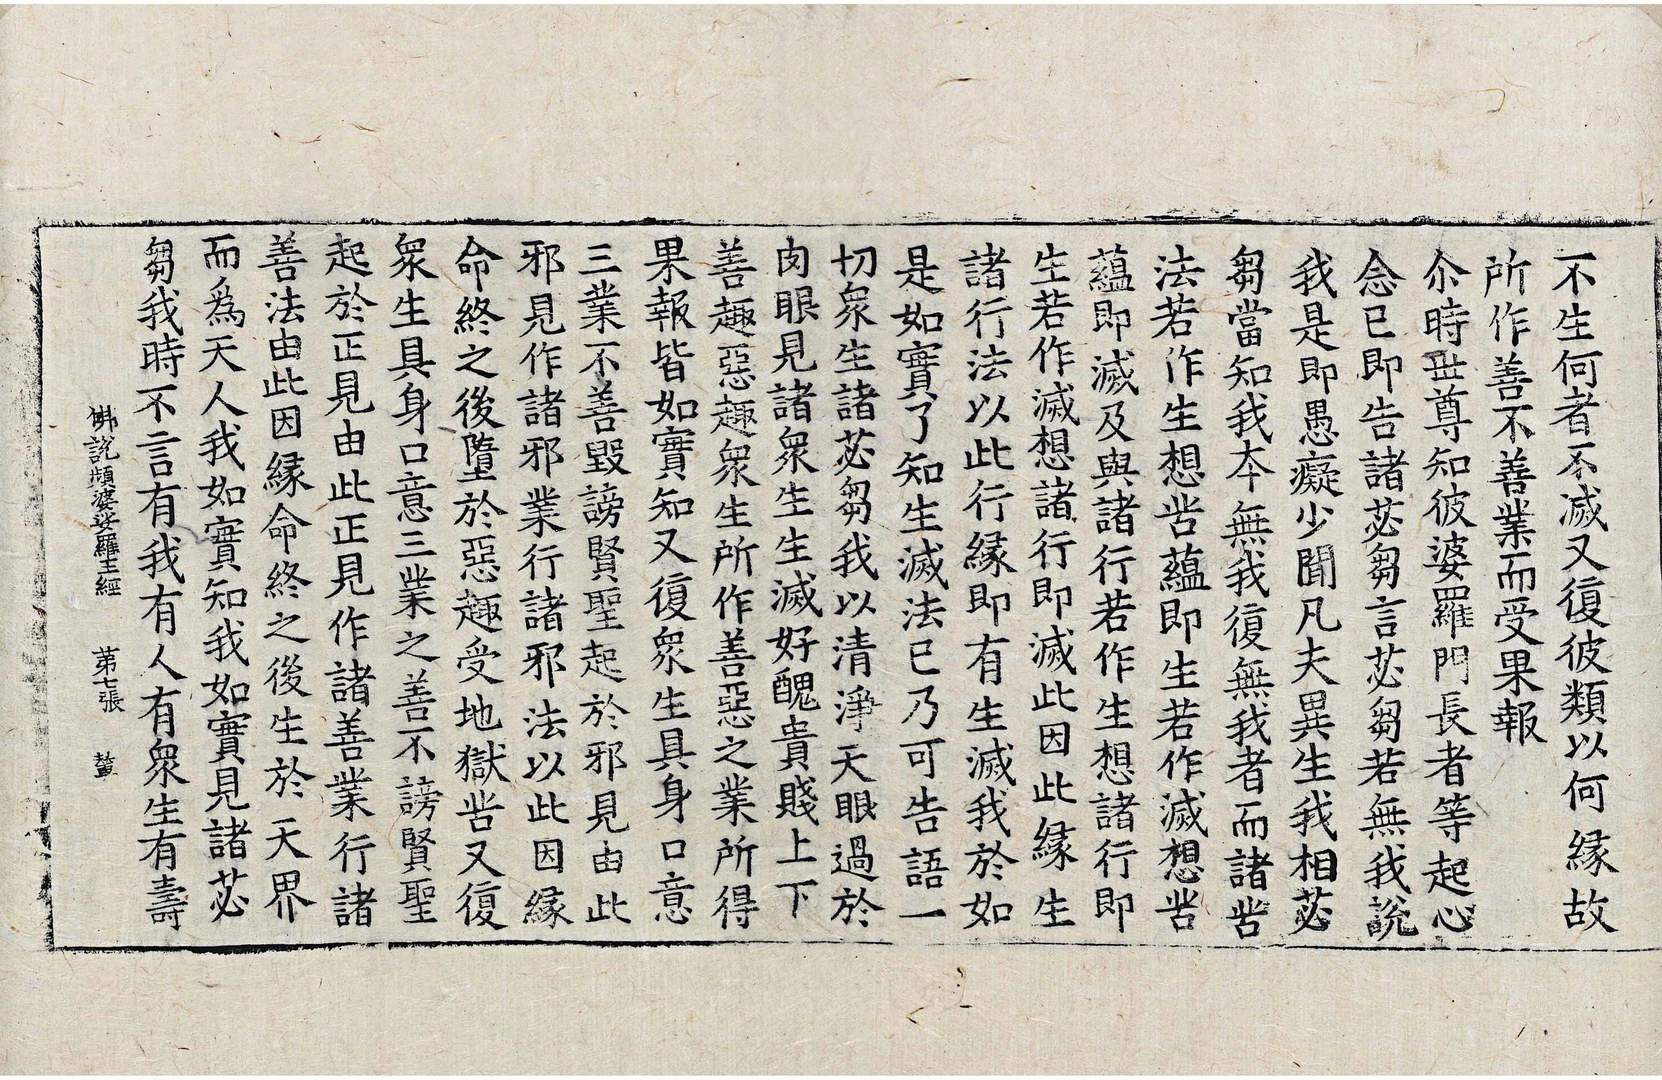 不生何者不滅又復彼類以何緣故
所作善不善業而受果報
尒時世尊知彼婆羅門長者等起心
念已即告諸苾芻言苾芻若無我說
我是即愚癡少聞凡夫異生我相苾
芻當知我本無我復無我者而諸苦
法若作生想苦蘊即生若作滅想苦
蘊即滅及與諸行若作生想諸行即
生若作滅想諸行即滅此因此緣生
諸行法以此行緣即有生滅我於如
是如實了知生滅法已乃可告語一
切衆生諸苾芻我以清淨天眼過於
肉眼見諸衆生生滅好醜貴賤上下
善趣惡趣衆生所作善惡之業所得
果報皆如實知又復衆生具身口意
三業不善毀謗賢聖起於邪見由此
邪見作諸邪業行諸邪法以此因緣
命終之後墮於惡趣受地獄苦又復
衆生具身口意三業之善不謗賢聖
起於正見由此正見作諸善業行諸
善法由此因緣命終之後生於天界
而爲天人我如實知我如實見諸苾
芻我時不言有我有人有衆生有壽
佛說頻婆娑羅王經 第七張 輦